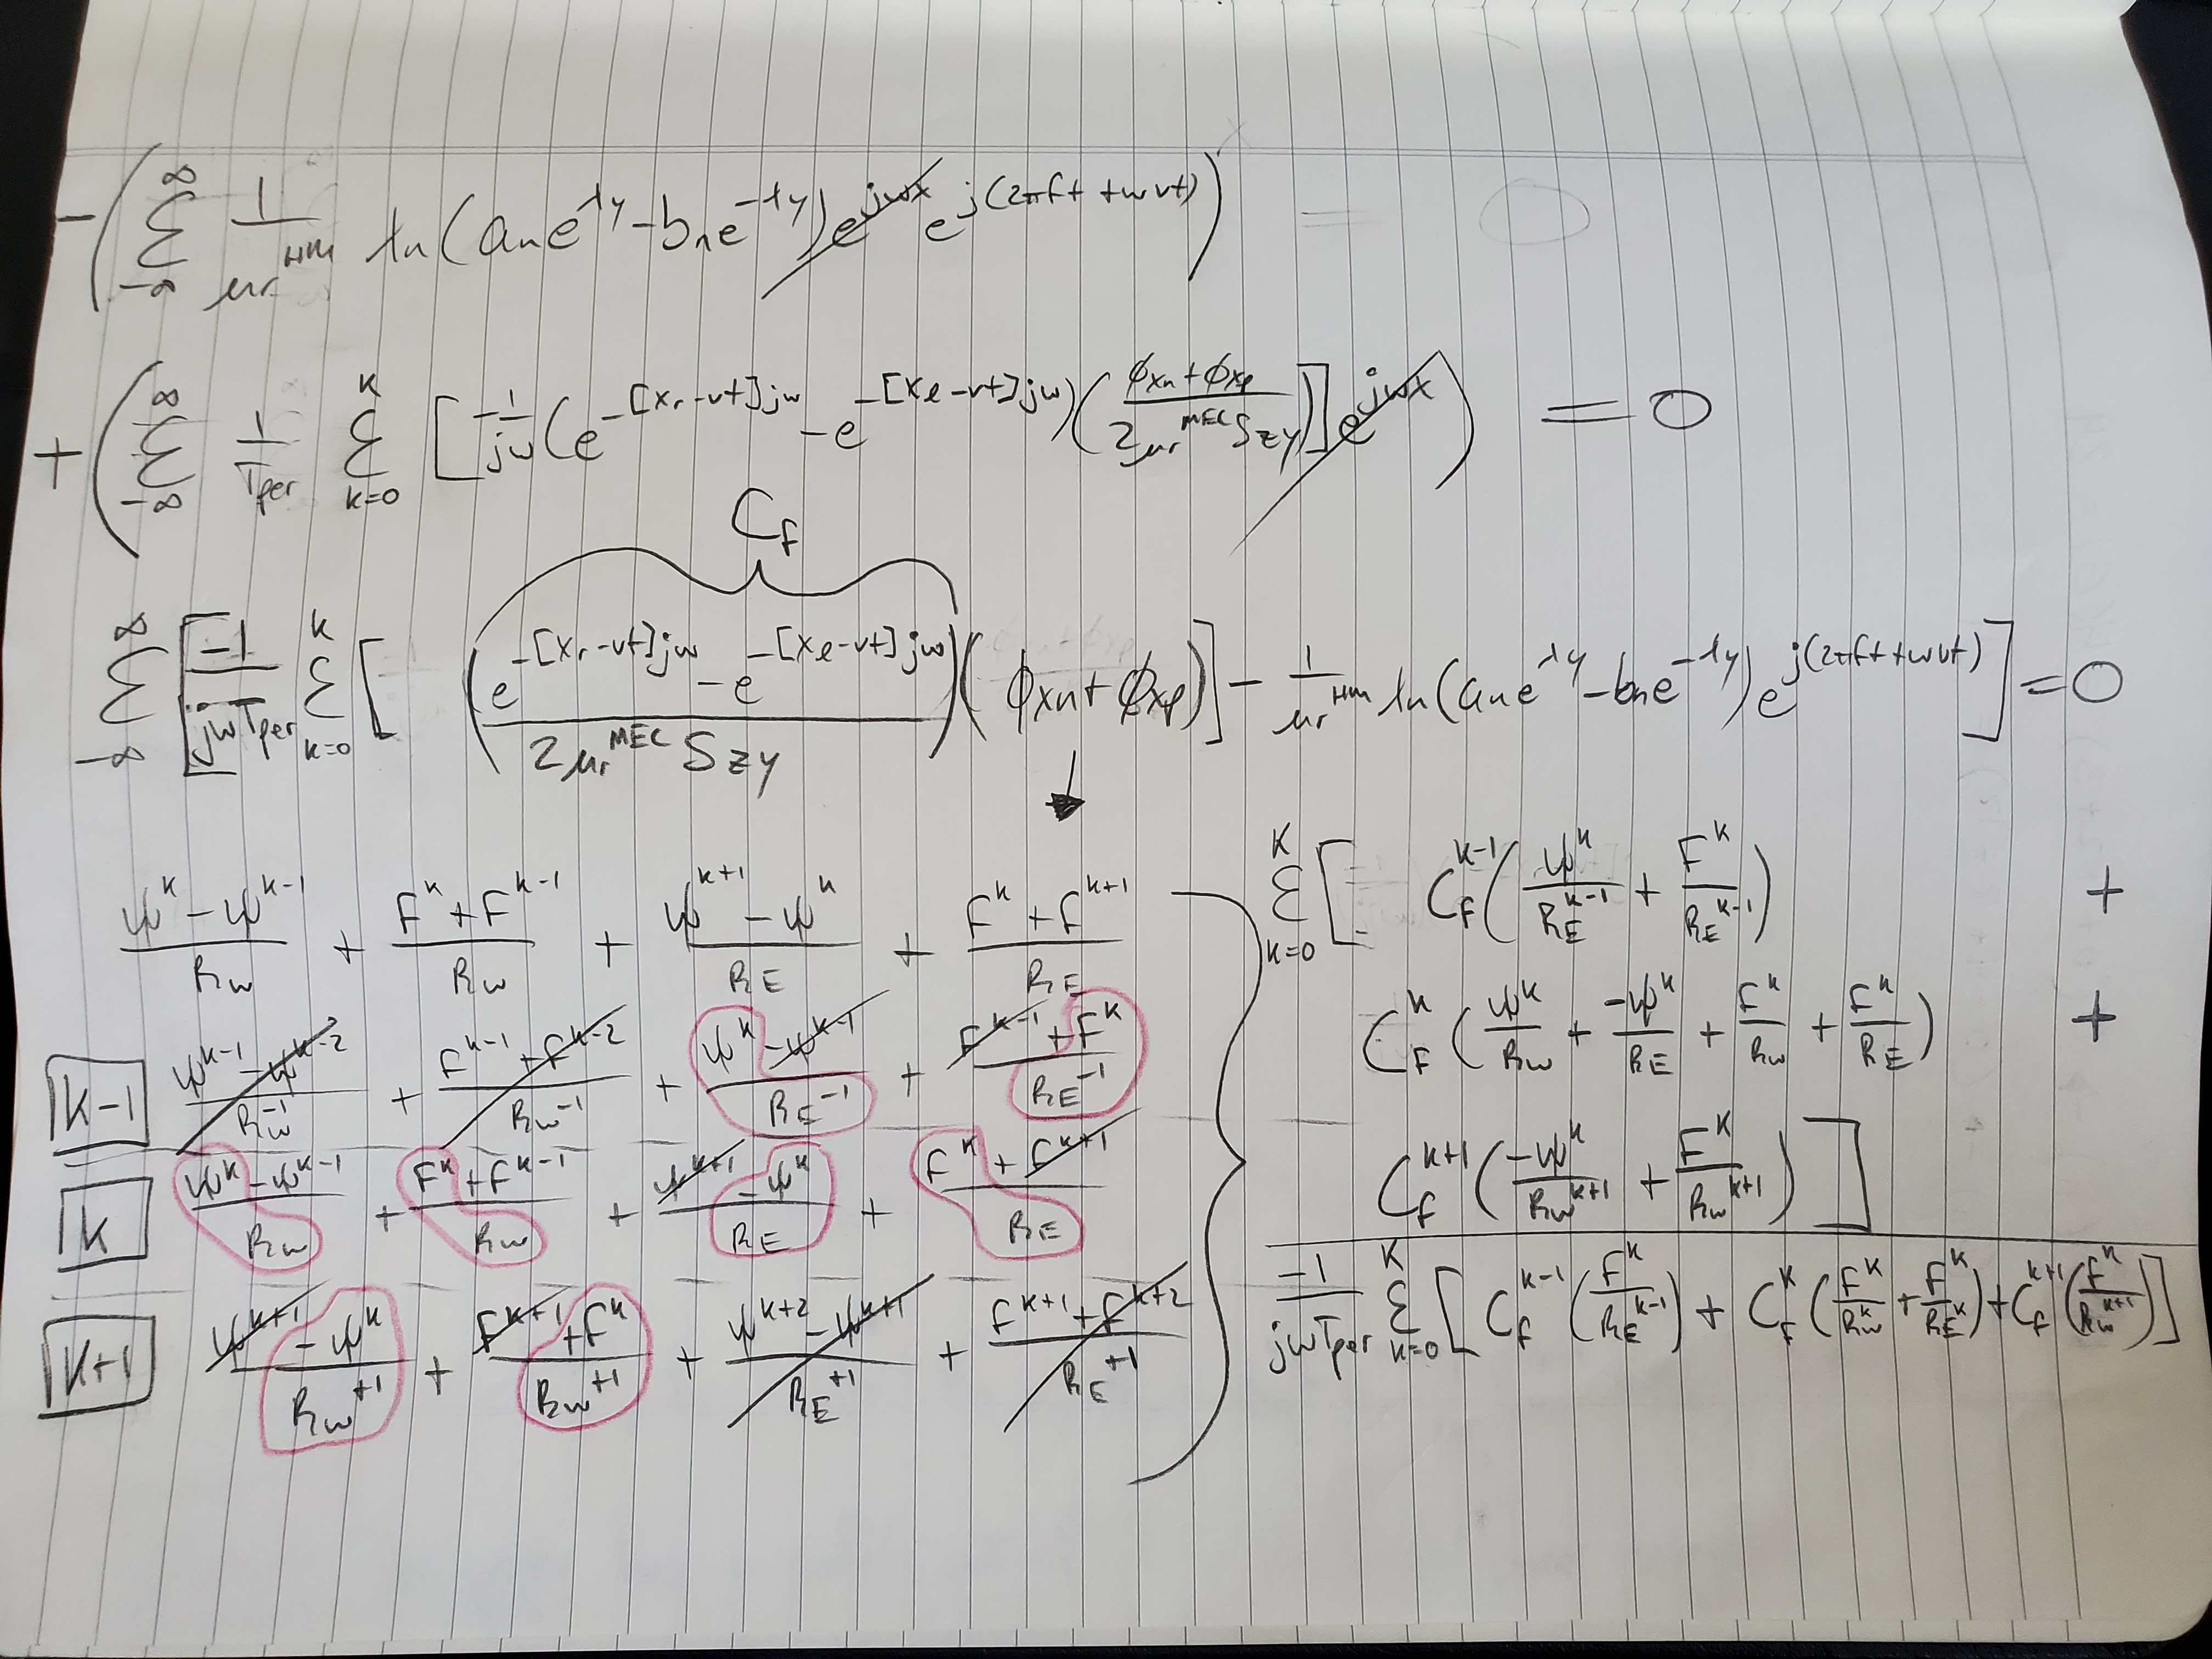 -(Σ_{-∞}^{∞} 1/μr^{HM} ln(an e^{λy} - bn e^{-λy}) e^{jwx} e^{j(2πft + wvt)}) = 0
+(Σ_{-∞}^{∞} 1/Tper Σ_{k=0}^{K} [-1/jw (e^{-[xr-vt]jw} - e^{-[xe-vt]jw}) (ϕxn + ϕxp / 2μr^{MEC} Szy)] e^{jwx}) = 0
Cf
Σ_{-∞}^{∞} [-1/jwTper Σ_{k=0}^{K} [(e^{-[xr-vt]jw} - e^{-[xe-vt]jw} / 2μr^{MEC} Szy) (ϕxn + ϕxp)] - 1/μr^{HM} ln(an e^{λy} - bn e^{-λy}) e^{j(2πft + wvt)}] = 0
ψ^k - ψ^{k-1} / Rw + F^k + F^{k-1} / Rw + ψ^{k+1} - ψ^k / RE + F^k + F^{k+1} / RE
k-1 ψ^{k-1} - ψ^{k-2} / Rw^{-1} + F^{k-1} + F^{k-2} / Rw^{-1} + ψ^k - ψ^{k-1} / RE^{-1} + F^{k-1} + F^k / RE^{-1}
k ψ^k - ψ^{k-1} / Rw + F^k + F^{k-1} / Rw + ψ^{k+1} - ψ^k / RE + F^k + F^{k+1} / RE
k+1 ψ^{k+1} - ψ^k / Rw^{+1} + F^{k+1} + F^k / Rw^{+1} + ψ^{k+2} - ψ^{k+1} / RE^{+1} + F^{k+1} + F^{k+2} / RE^{+1}
Σ_{k=0}^{K} [Cf^{k-1} (ψ^k / RE^{k-1} + F^k / RE^{k-1}) +
Cf^k (ψ^k / Rw + -ψ^k / RE + F^k / Rw + F^k / RE) +
Cf^{k+1} (-ψ^k / Rw^{k+1} + F^k / Rw^{k+1})]
-1/jwTper Σ_{k=0}^{K} [Cf^{k-1} (F^k / RE^{k-1}) + Cf^k (F^k / Rw^k + F^k / RE^k) + Cf^{k+1} (F^k / Rw^{k+1})]